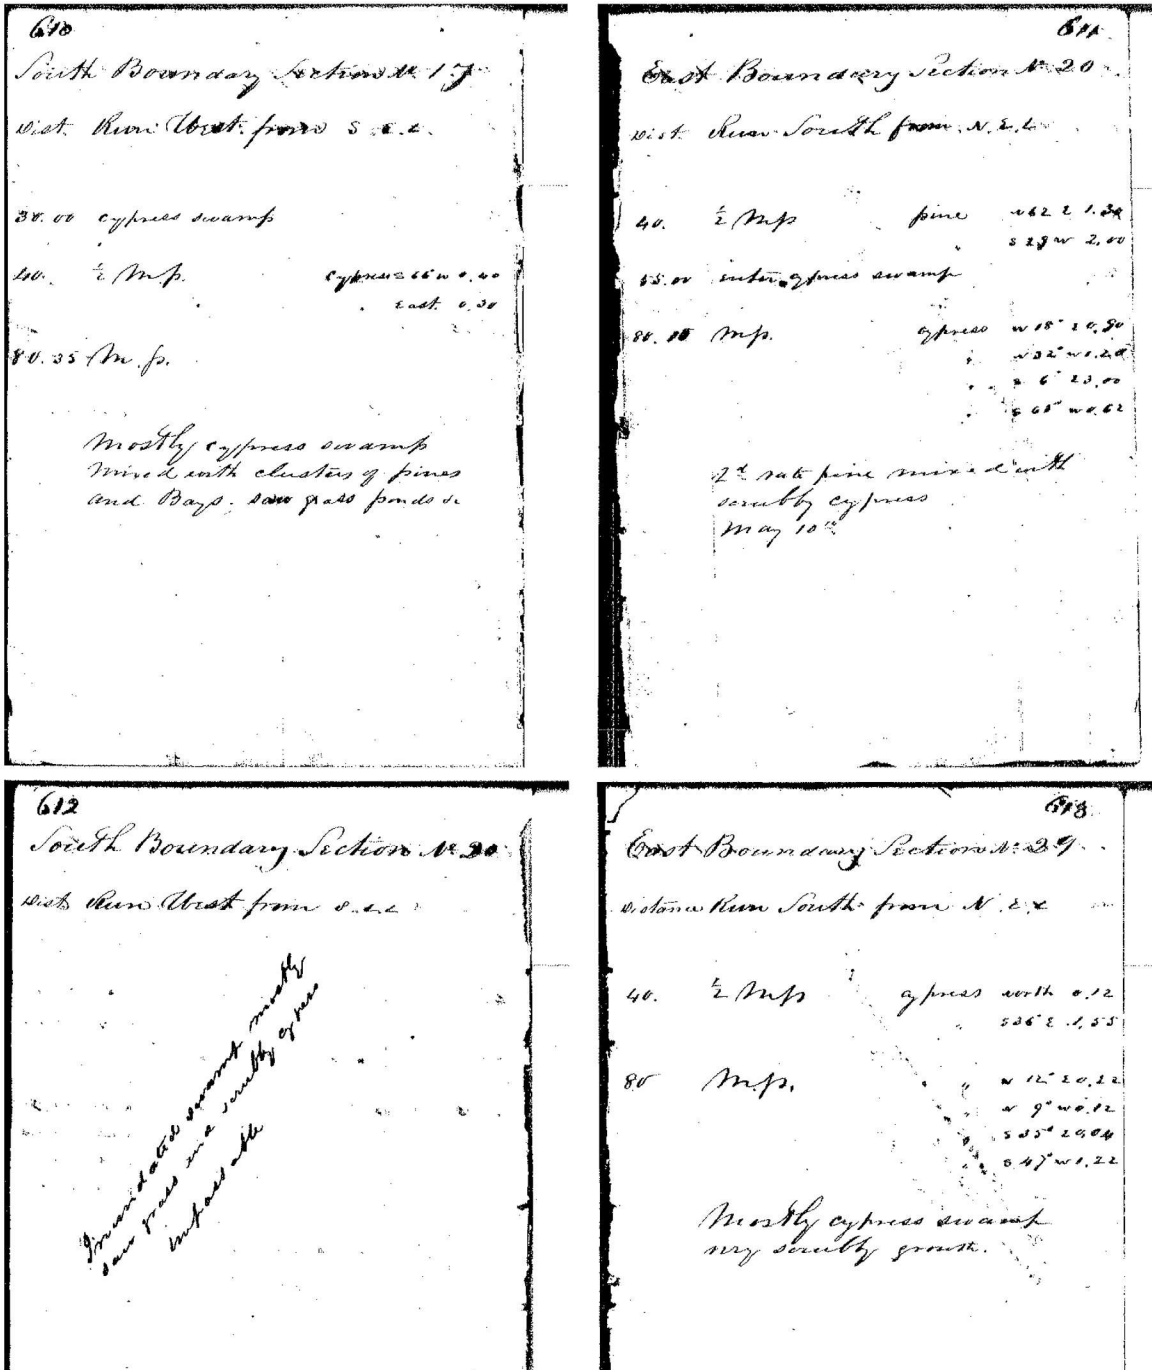 610
South Boundary Section No 17
Dist. Run West from S. E. C.
30.00 cypress swamp
40. ½ M.p. cypress S 66 W 0.40
" East. 0.30
80.35 M.p.
Mostly cypress swamp
Mixed with clusters of pines
and Bays. saw grass ponds &c
611
East Boundary Section No 20
Dist. Run South from N. E. C.
40. ½ M.p. pine N 62 E 1.30
" S 28 W 2.00
55.00 enter cypress swamp
80.10 M.p. cypress N 18° E 0.90
" N 32° W 1.20
" S 6° E 3.00
" S 65° W 0.62
2d rate pine mixed with
scrubby cypress
May 10th
612
South Boundary Section No 20
Dist. Run West from S. E. C.
Innundated swamp mostly
saw grass and scrubby cypress
impassable
613
East Boundary Section No 29
Distance Run South from N. E. C.
40. ½ M.p. cypress north 0.12
" S 36° E 1.55
80 M.p. " N 12° E 0.22
" N 9° W 0.12
" S 35° E 0.04
" S 47° W 1.22
Mostly cypress swamp
very scrubby growth.